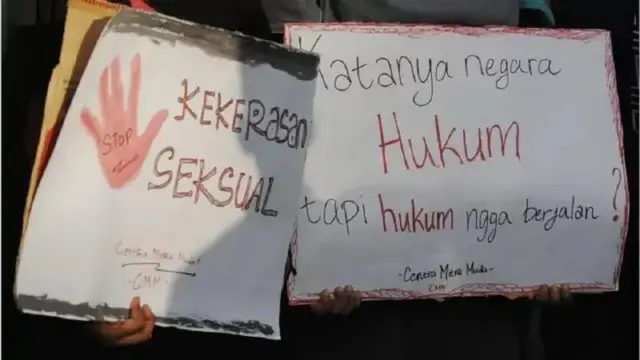 STOP
KEKERASAN
SEKSUAL
Centra Mitra Muda
- CMM -
Katanya negara
Hukum
tapi hukum ngga berjalan ?
- Centra Mitra Muda -
CMM